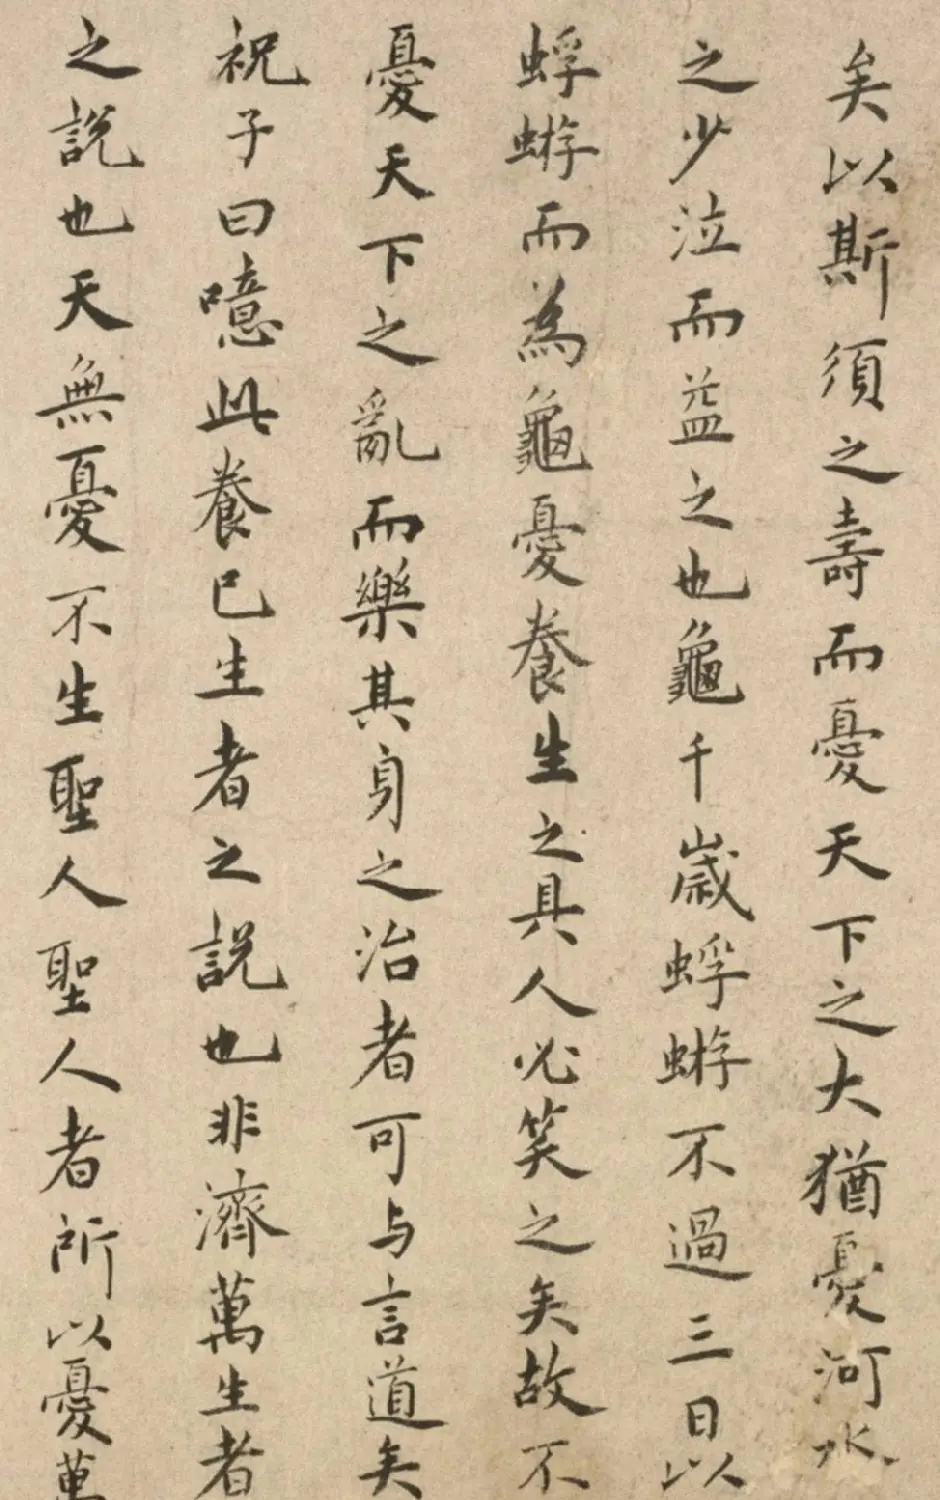 矣以斯須之壽而憂天下之大猶憂河水
之少泣而益之也龜千歲蜉蝣不過三日以
蜉蝣而為龜憂養生之具人必笑之矣故不
憂天下之亂而樂其身之治者可与言道矣
祝子曰噫此養已生者之説也非濟萬生者
之説也天無憂不生聖人聖人者所以憂萬